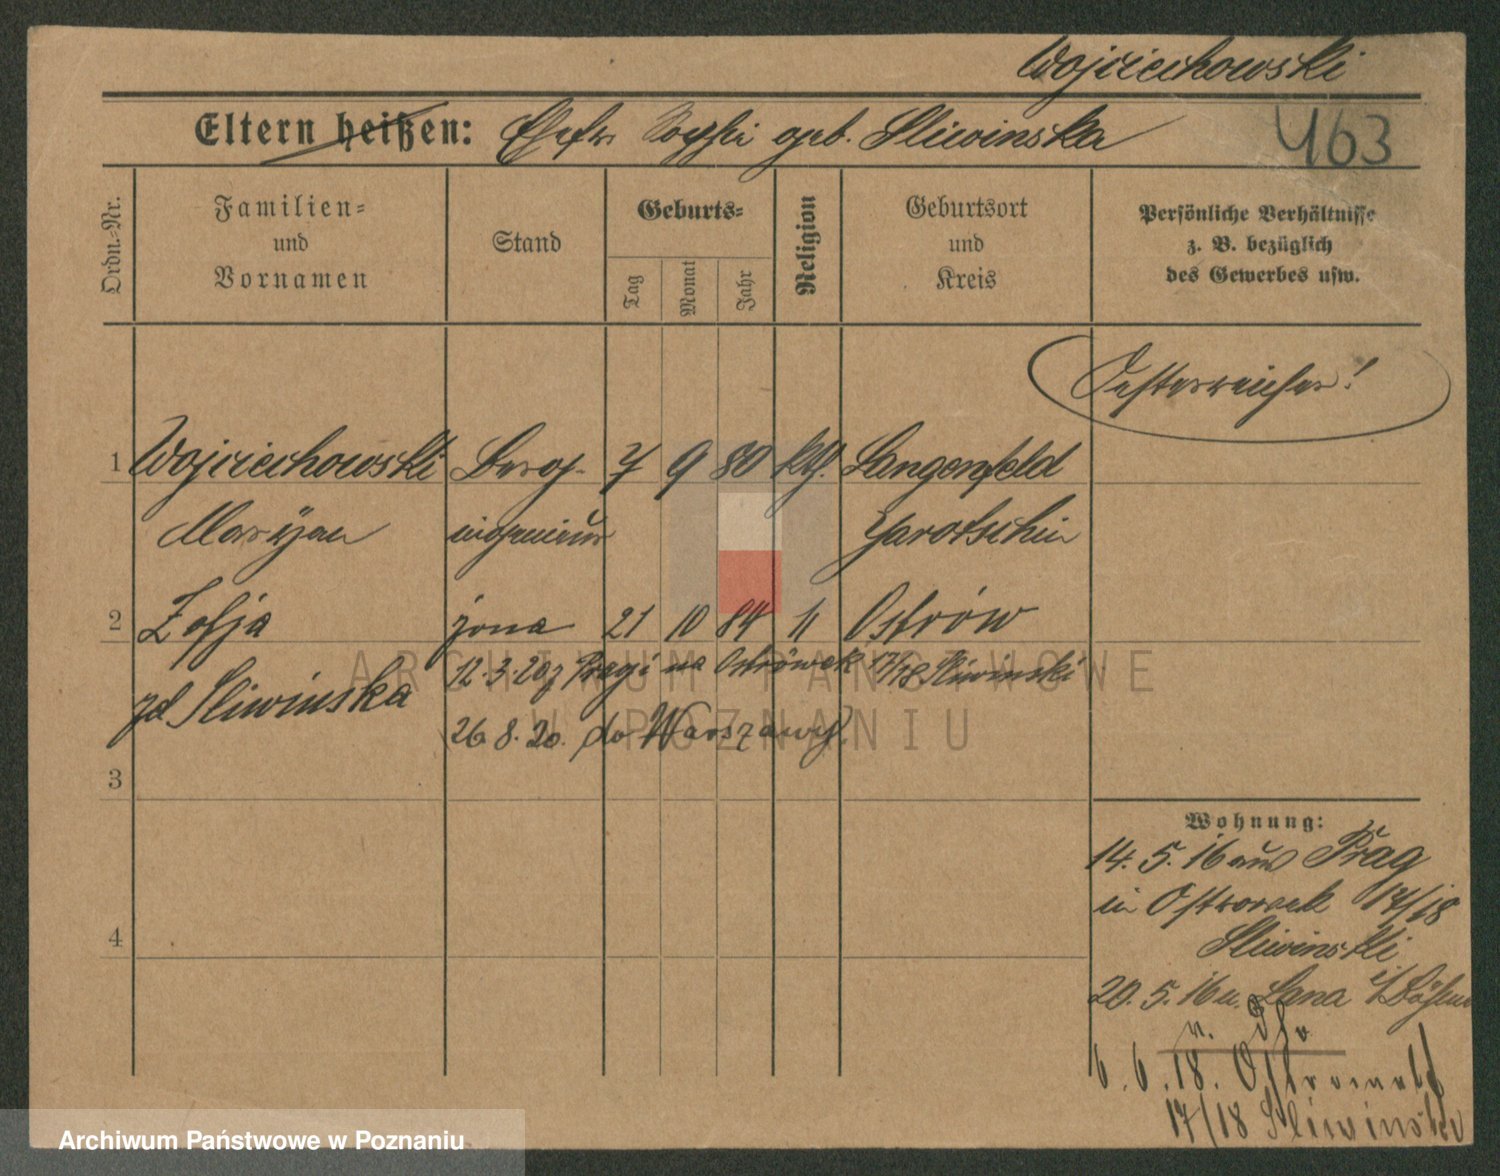 Wojciechowski
Eltern heißen: Ehefr. Sophi geb. Sliwinska
463
Ordn.-Nr.
Familien- und Vornamen
Stand
Geburts-
Tag
Monat
Jahr
Religion
Geburtsort und Kreis
Persönliche Verhältnisse z. B. bezüglich des Gewerbes usw.
Oesterreicher!
1 Wojciechowski Berg- 7 9 80 kth. Langenfeld
Maryan ingenieur Jarotschin
2 Zofja żona 21 10 84 " Ostrów
12.3.20 z Pragi na Ostrówek 17/18 Sliwinski
zd Sliwinska
26.8.20. do Warszawy
3
4
Wohnung:
14. 5. 16 aus Prag
in Ostrowek 17/18
Sliwinski
20. 5. 16 n. Lana i/Böhmen
6. 6. 18. Ostrowek
17/18 Sliwinski
ARCHIWUM PAŃSTWOWE
W POZNANIU
Archiwum Państwowe w Poznaniu